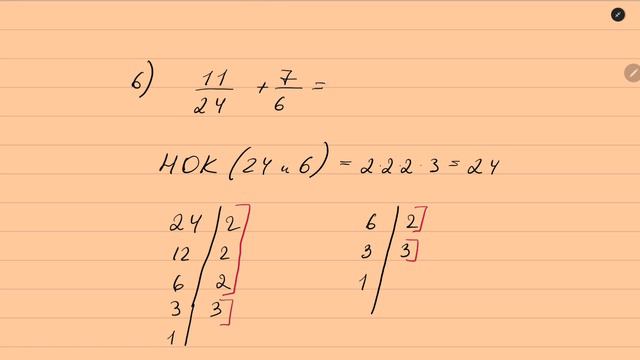 б) 11/24 + 7/6 =
НОК (24 и 6) = 2·2·2·3 = 24
24 | 2 6 | 2
12 | 2 3 | 3
6 | 2 1 |
3 | 3
1 |